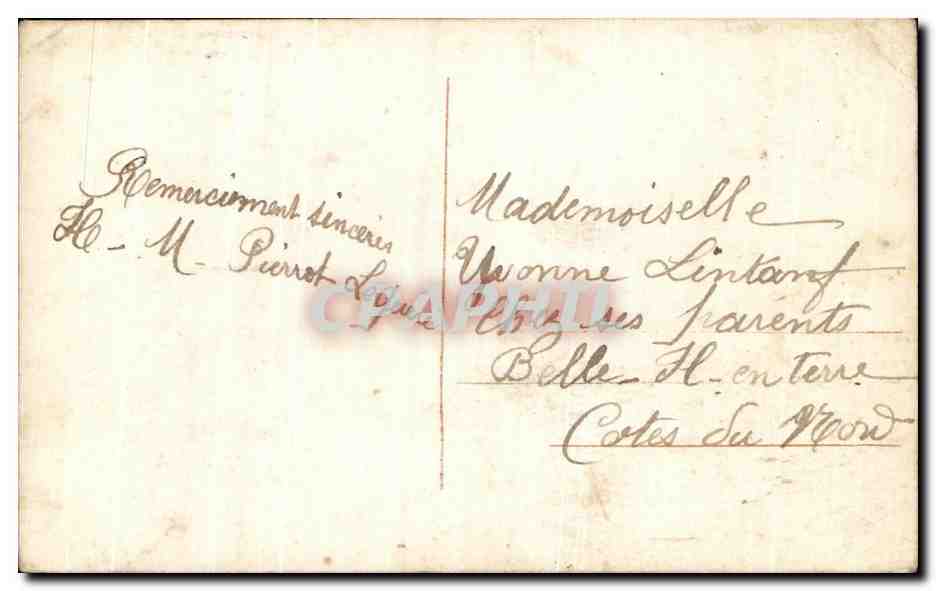 Remerciement sincères
H - M - Pierrot
Mademoiselle
Yvonne Lintanf
Chez ses parents
Belle-Il-en terre
Cotes du Nord
CPAPHIL